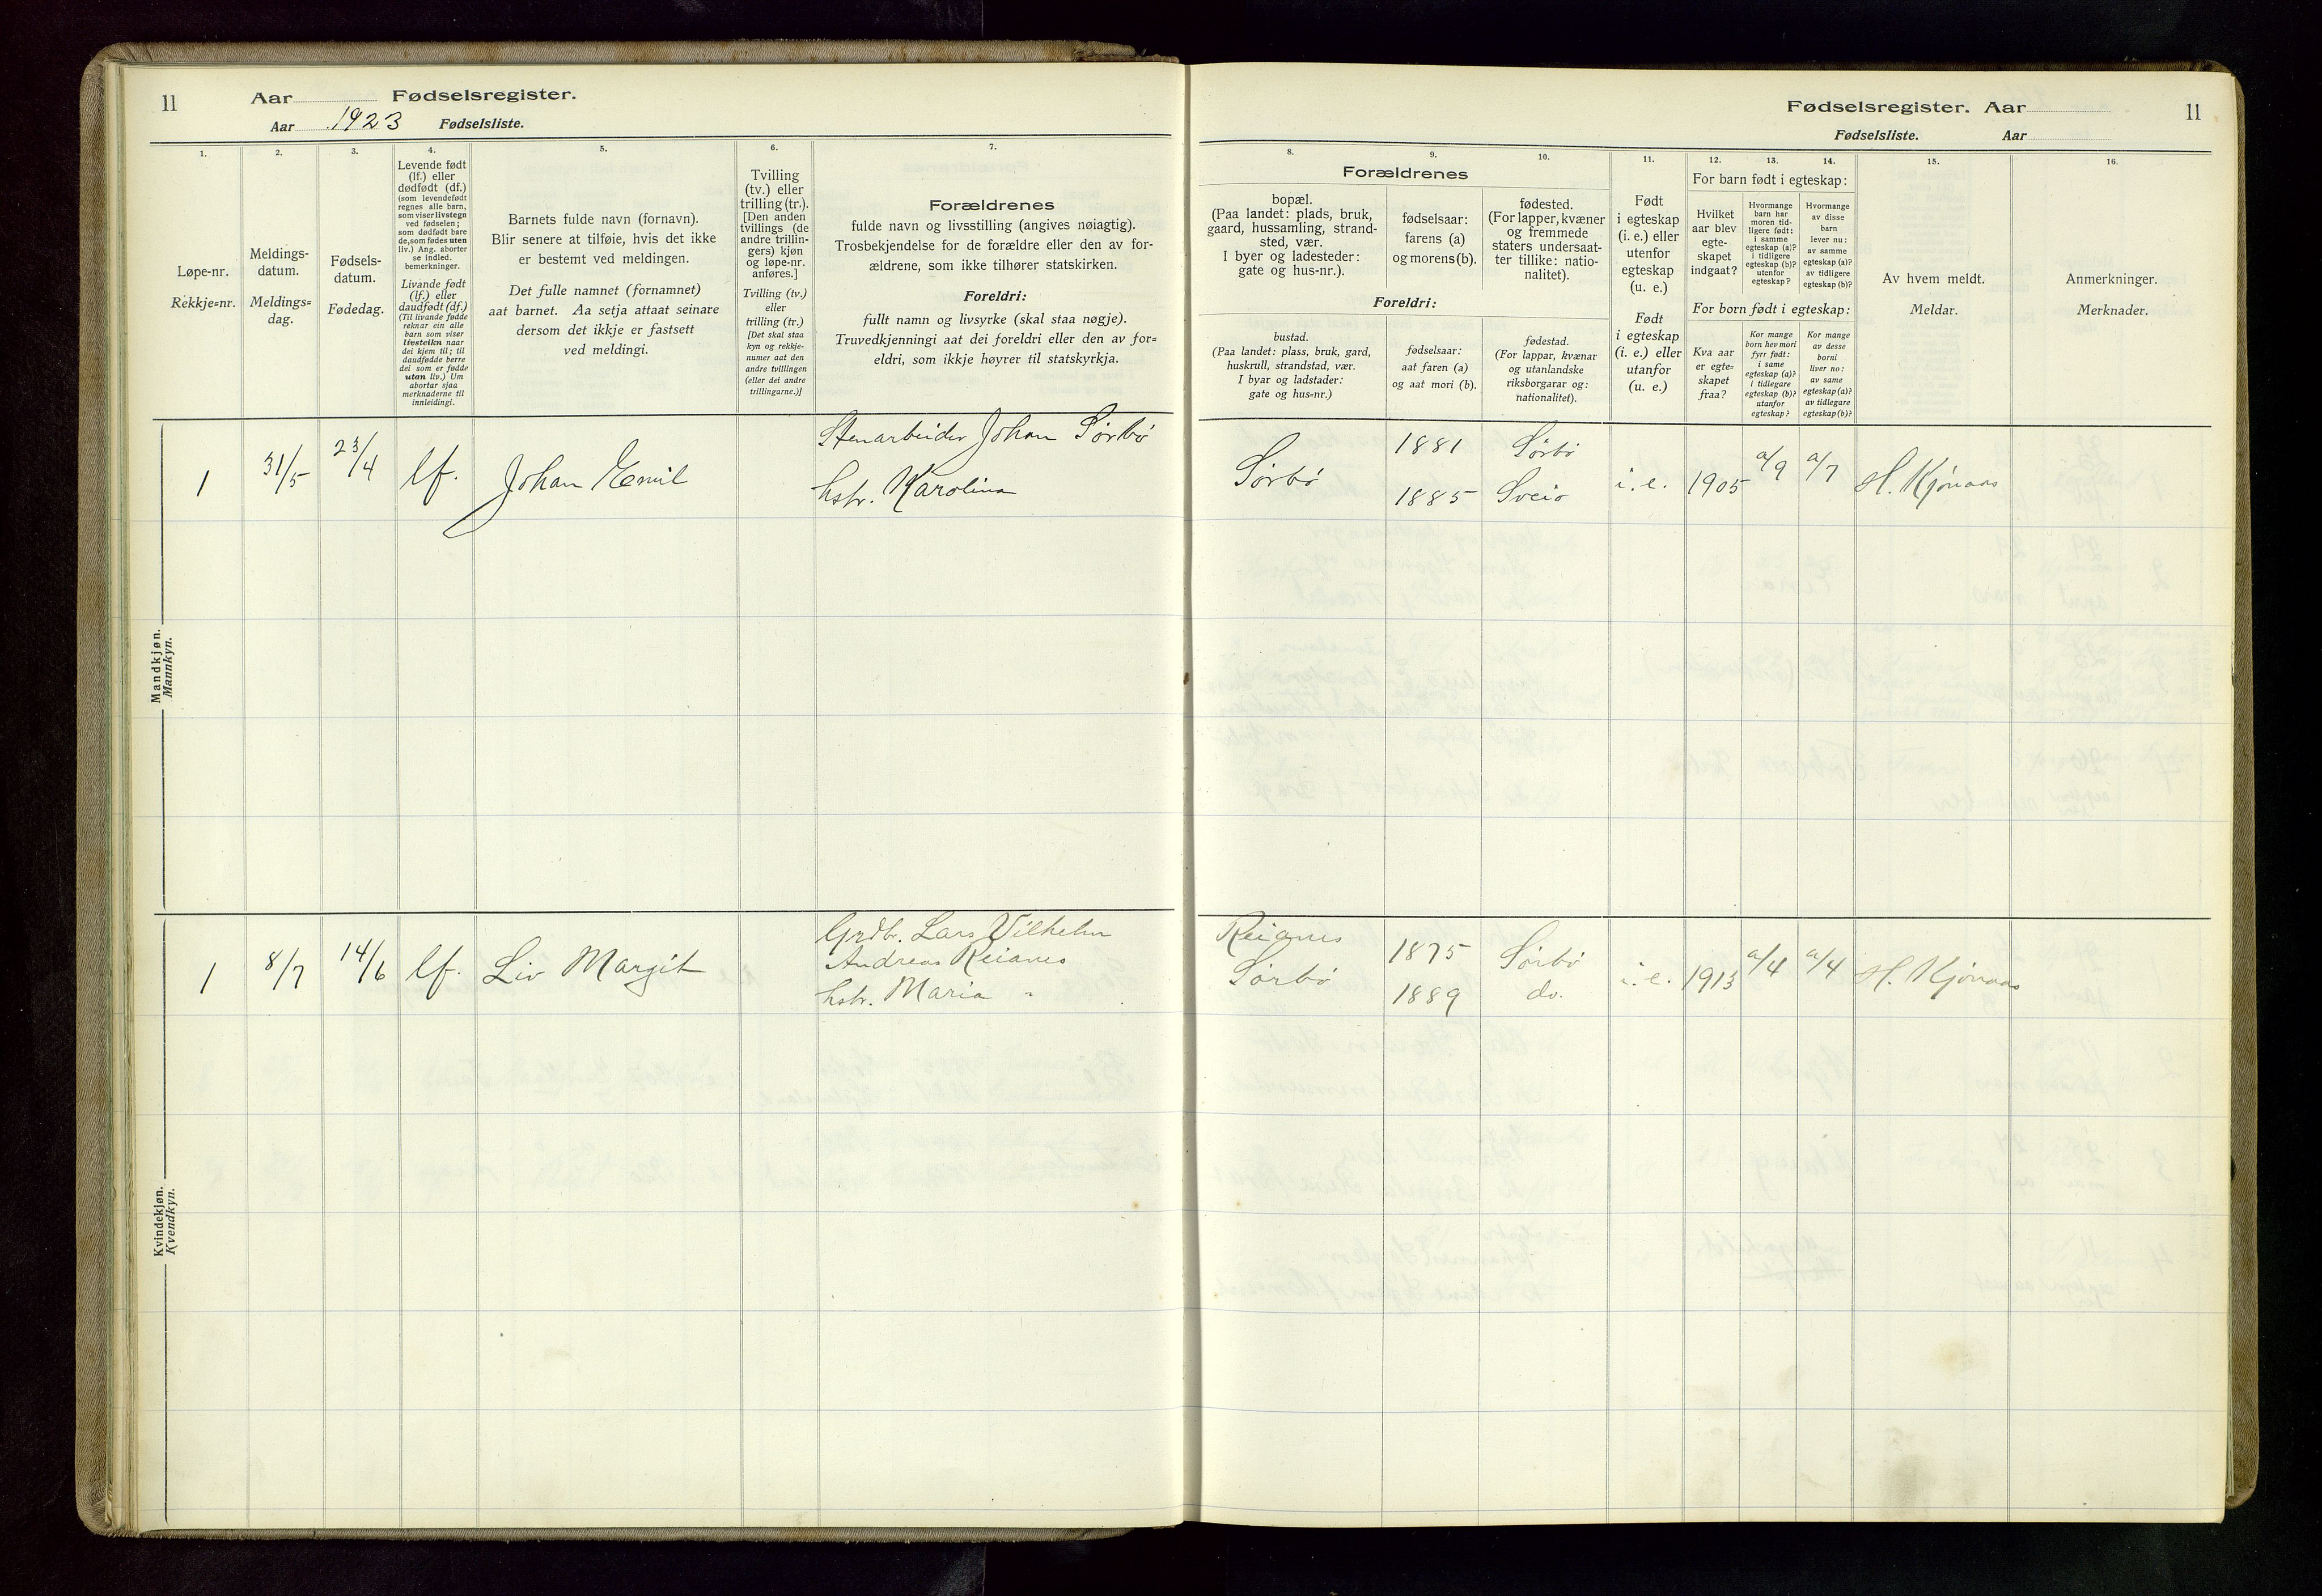 11
Aar Fødselsregister.
Aar 1923 Fødselsliste.
1.
2.
3.
4.
5.
6.
7.
Løpe-nr.
Rekkje=nr.
Meldings-
datum.
Meldings=
dag.
Fødsels-
datum.
Fødedag.
Levende født
(lf.) eller
dødfødt (df.)
(som levendefødt
regnes alle barn,
som viser livstegn
ved fødselen;
som dødfødt bare
de, som fødes uten
liv.) Ang. aborter
se indled.
bemerkninger.
Livande født
(lf.) eller
daudfødt (df.)
(Til livande fødde
reknar ein alle
barn som viser
livsteikn naar
dei kjem til; til
daudfødde berre
dei som er fødde
utan liv.) Um
abortar sjaa
merknaderne til
innleidingi.
Barnets fulde navn (fornavn).
Blir senere at tilføie, hvis det ikke
er bestemt ved meldingen.
Det fulle namnet (fornamnet)
aat barnet. Aa setja attaat seinare
dersom det ikkje er fastsett
ved meldingi.
Tvilling
(tv.) eller
trilling (tr.).
[Den anden
tvillings (de
andre trillin-
gers) kjøn
og løpe-nr.
anføres.]
Tvilling (tv.)
eller
trilling (tr.)
[Det skal staa
kyn og rekkje-
numer aat den
andre tvillingen
(eller dei andre
trillingarne.)]
Forældrenes
fulde navn og livsstilling (angives nøiagtig).
Trosbekjendelse for de forældre eller den av for-
ældrene, som ikke tilhører statskirken.
Foreldri:
fullt namn og livsyrke (skal staa nøgje).
Truvedkjenningi aat dei foreldri eller den av for=
eldri, som ikkje høyrer til statskyrkja.
Mandkjøn.
Mannkyn.
1 31/5 23/4 lf. Johan Emil
Stenarbeider Johan Sørbø
hstr. Karolina
Kvindekjøn.
Kvendkyn.
1 8/7 14/6 lf. Liv Margit
Grdbr. Lars Vilhelm
Andreas Reianes
hstr. Maria "
Fødselsregister. Aar 11
Fødselsliste. Aar
8.
9.
10.
11.
12.
13.
14.
15.
16.
Forældrenes
bopæl.
(Paa landet: plads, bruk,
gaard, hussamling, strand-
sted, vær.
I byer og ladesteder:
gate og hus-nr.).
fødselsaar:
farens (a)
og morens (b).
fødested.
(For lapper, kvæner
og fremmede
staters undersaat-
ter tillike: natio-
nalitet).
Foreldri:
bustad.
(Paa landet: plass, bruk, gard,
huskrull, strandstad, vær.
I byar og ladstader:
gate og hus=nr.)
fødselsaar:
aat faren (a)
og aat mori (b).
fødestad.
(For lappar, kvænar
og utanlandske
riksborgarar og:
nationalitet).
Født
i egteskap
(i. e.) eller
utenfor
egteskap
(u. e.)
Født
i egteskap
(i. e.) eller
utanfor
(u. e.)
For barn født i egteskap:
Hvilket
aar blev
egte-
skapet
indgaat?
Hvormange
barn har
moren tid-
ligere født:
i samme
egteskap (a)?
i tidligere
egteskap (b)?
utenfor
egteskap?
Hvormange
av disse
barn
lever nu:
av samme
egteskap (a)?
av tidligere
egteskap (b)?
For born født i egteskap:
Kva aar
er egte=
skapet
fraa?
Kor mange
born hev mori
fyrr født:
i same
egteskap (a)?
i tidlegare
egteskap (b)?
utanfor
egteskap?
Kor mange
av desse
borni
liver no:
av same
egteskap (a)?
av tidlegare
egteskap (b)?
Av hvem meldt.
Meldar.
Anmerkninger.
Merknader.
Sørbø 1881 Sørbø i. e. 1905 a/9 a/7 H. Kjønaas
1885 Sveio
Reianes
Sørbø 1875 Sørbø i. e. 1913 a/4 a/4 H. Kjønaas
1889 do.